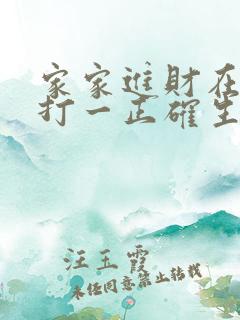 家家進財在
打一正確生
汪玉霞
未经同意禁止转载